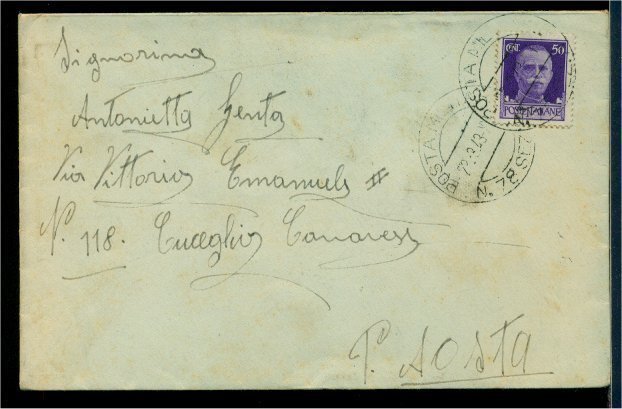 Signorina
Antonietta Genta
Via Vittorio Emanuele II
N. 118. Cuceglio Canavese
P. AOSTA
CENT. 50
POSTE ITALIANE
POSTA MIL
POSTA MIL
N. 22 SEZ